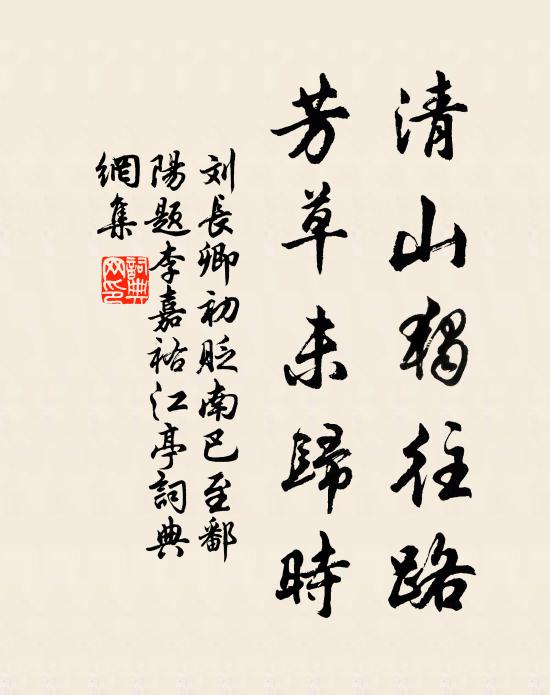 清山獨往路
芳草未歸時
刘長卿初貶南巴至鄱
陽題李嘉祐江亭詞典
網集
詞典
网印